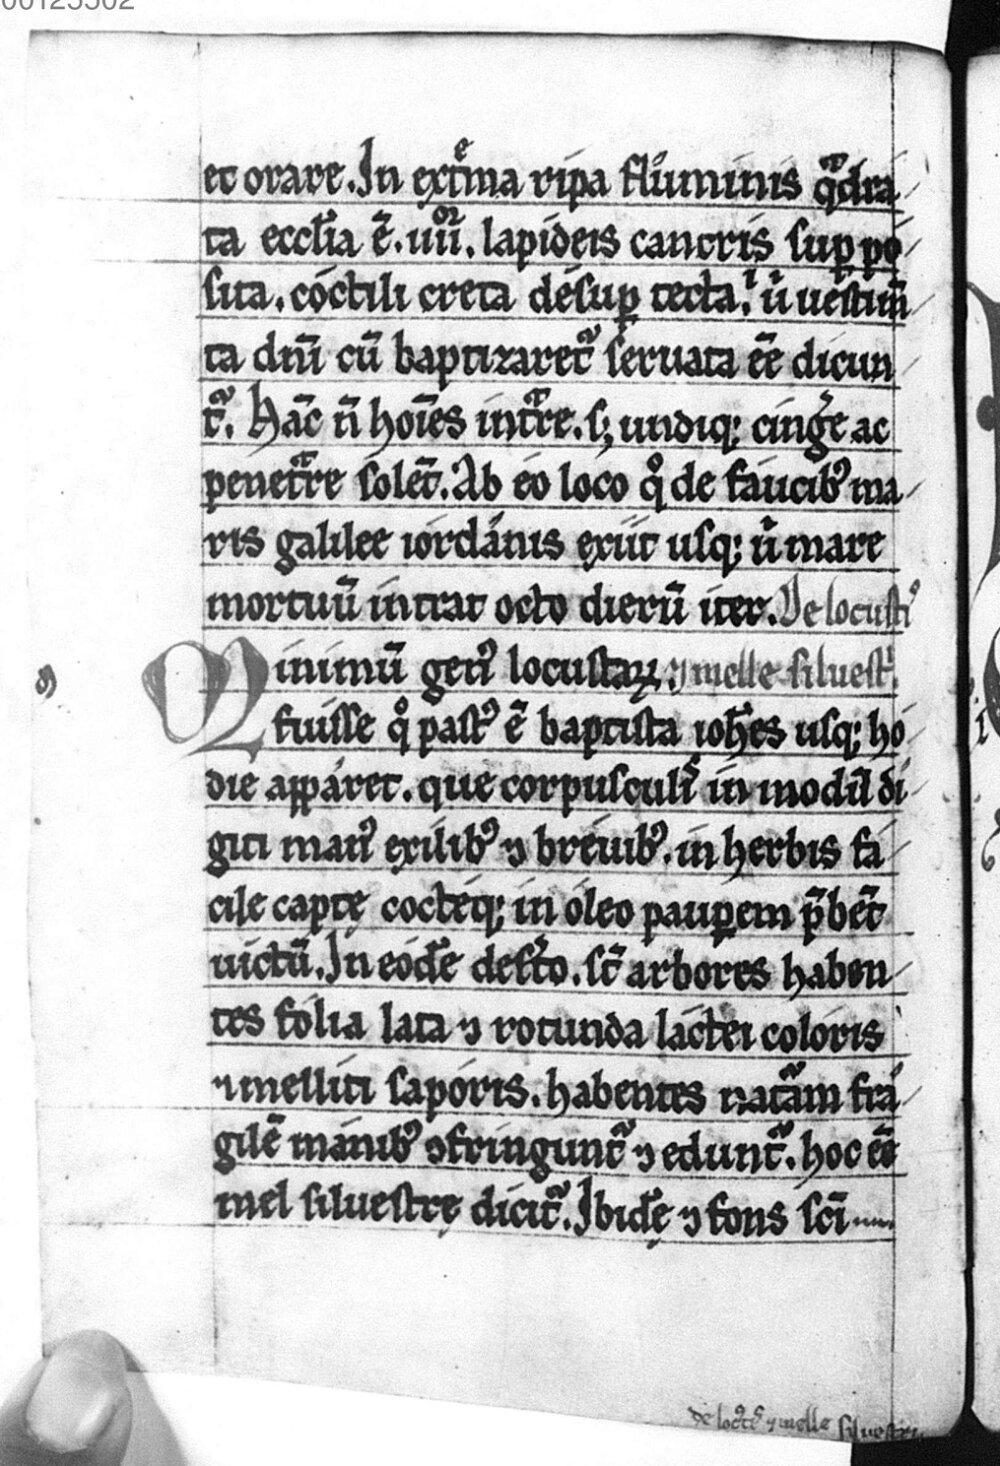 00125502
et orare. In ext̅ᵉma ripa fluminis q̅dra
ta eccl̅ia ē. iiii͛. lapideis cancris sup̲po
sita. coctili creta desup̲ tecta. ibi u̅ uestim̅
ta dn̅i cū baptizaret᷑ seruata ee̅ dicun
t᷑. Hāc n̅ hoīes int͛re. s; undiq; cinge͛ ac
penet͛re solēt. Ab eo loco q° de faucibꝰ ma
ris galilee iordanis exiit usq; ů mare
mortuū intrat octo dierū iter. De locustꝭ
Minimū genꝰ locustaꝝ. ⁊ melle siluest͛.
fuisse q° pastꝰ ē baptista ioh̅es usq; ho
die apparet. que corpusculis in modū di
giti manꝰ exilibꝰ ⁊ breuibꝰ. in herbis fa
cile captę cocteq; in oleo paup̲em p̅bēt
uictū. In eodē des͛to. st̅ arbores haben
tes folia lata ⁊ rotunda lactei coloris
⁊ melliti saporis. habentes nat᷑am fra
gilē manibꝰ ꝯfringunt᷑ ⁊ edunt᷑. hoc ēē
mel siluestrę dicit᷑. Ibidē ⁊ fons sc̅i
de locꝰtꝭ ⁊ melle siluestri